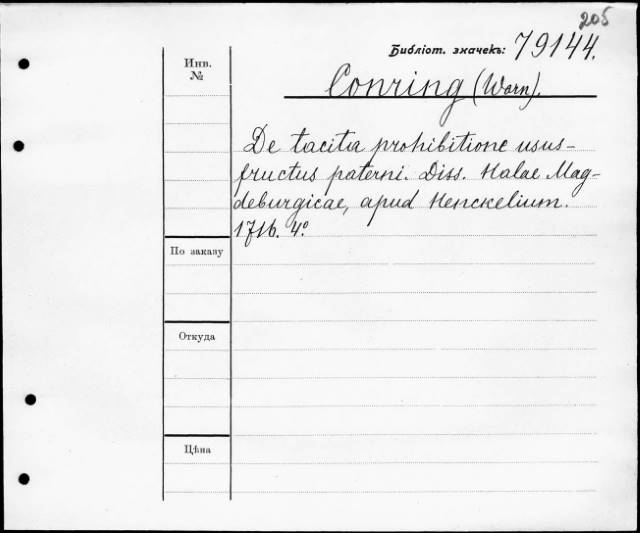 205
Библіот. значекъ: 79144.
Инв.
№
Conring (Warn).
De tacita prohibitione usus-
fructus paterni. Diss. Halae Mag-
deburgicae, apud Henckelium.
1716. 4.º
По заказу
Откуда
Цѣна